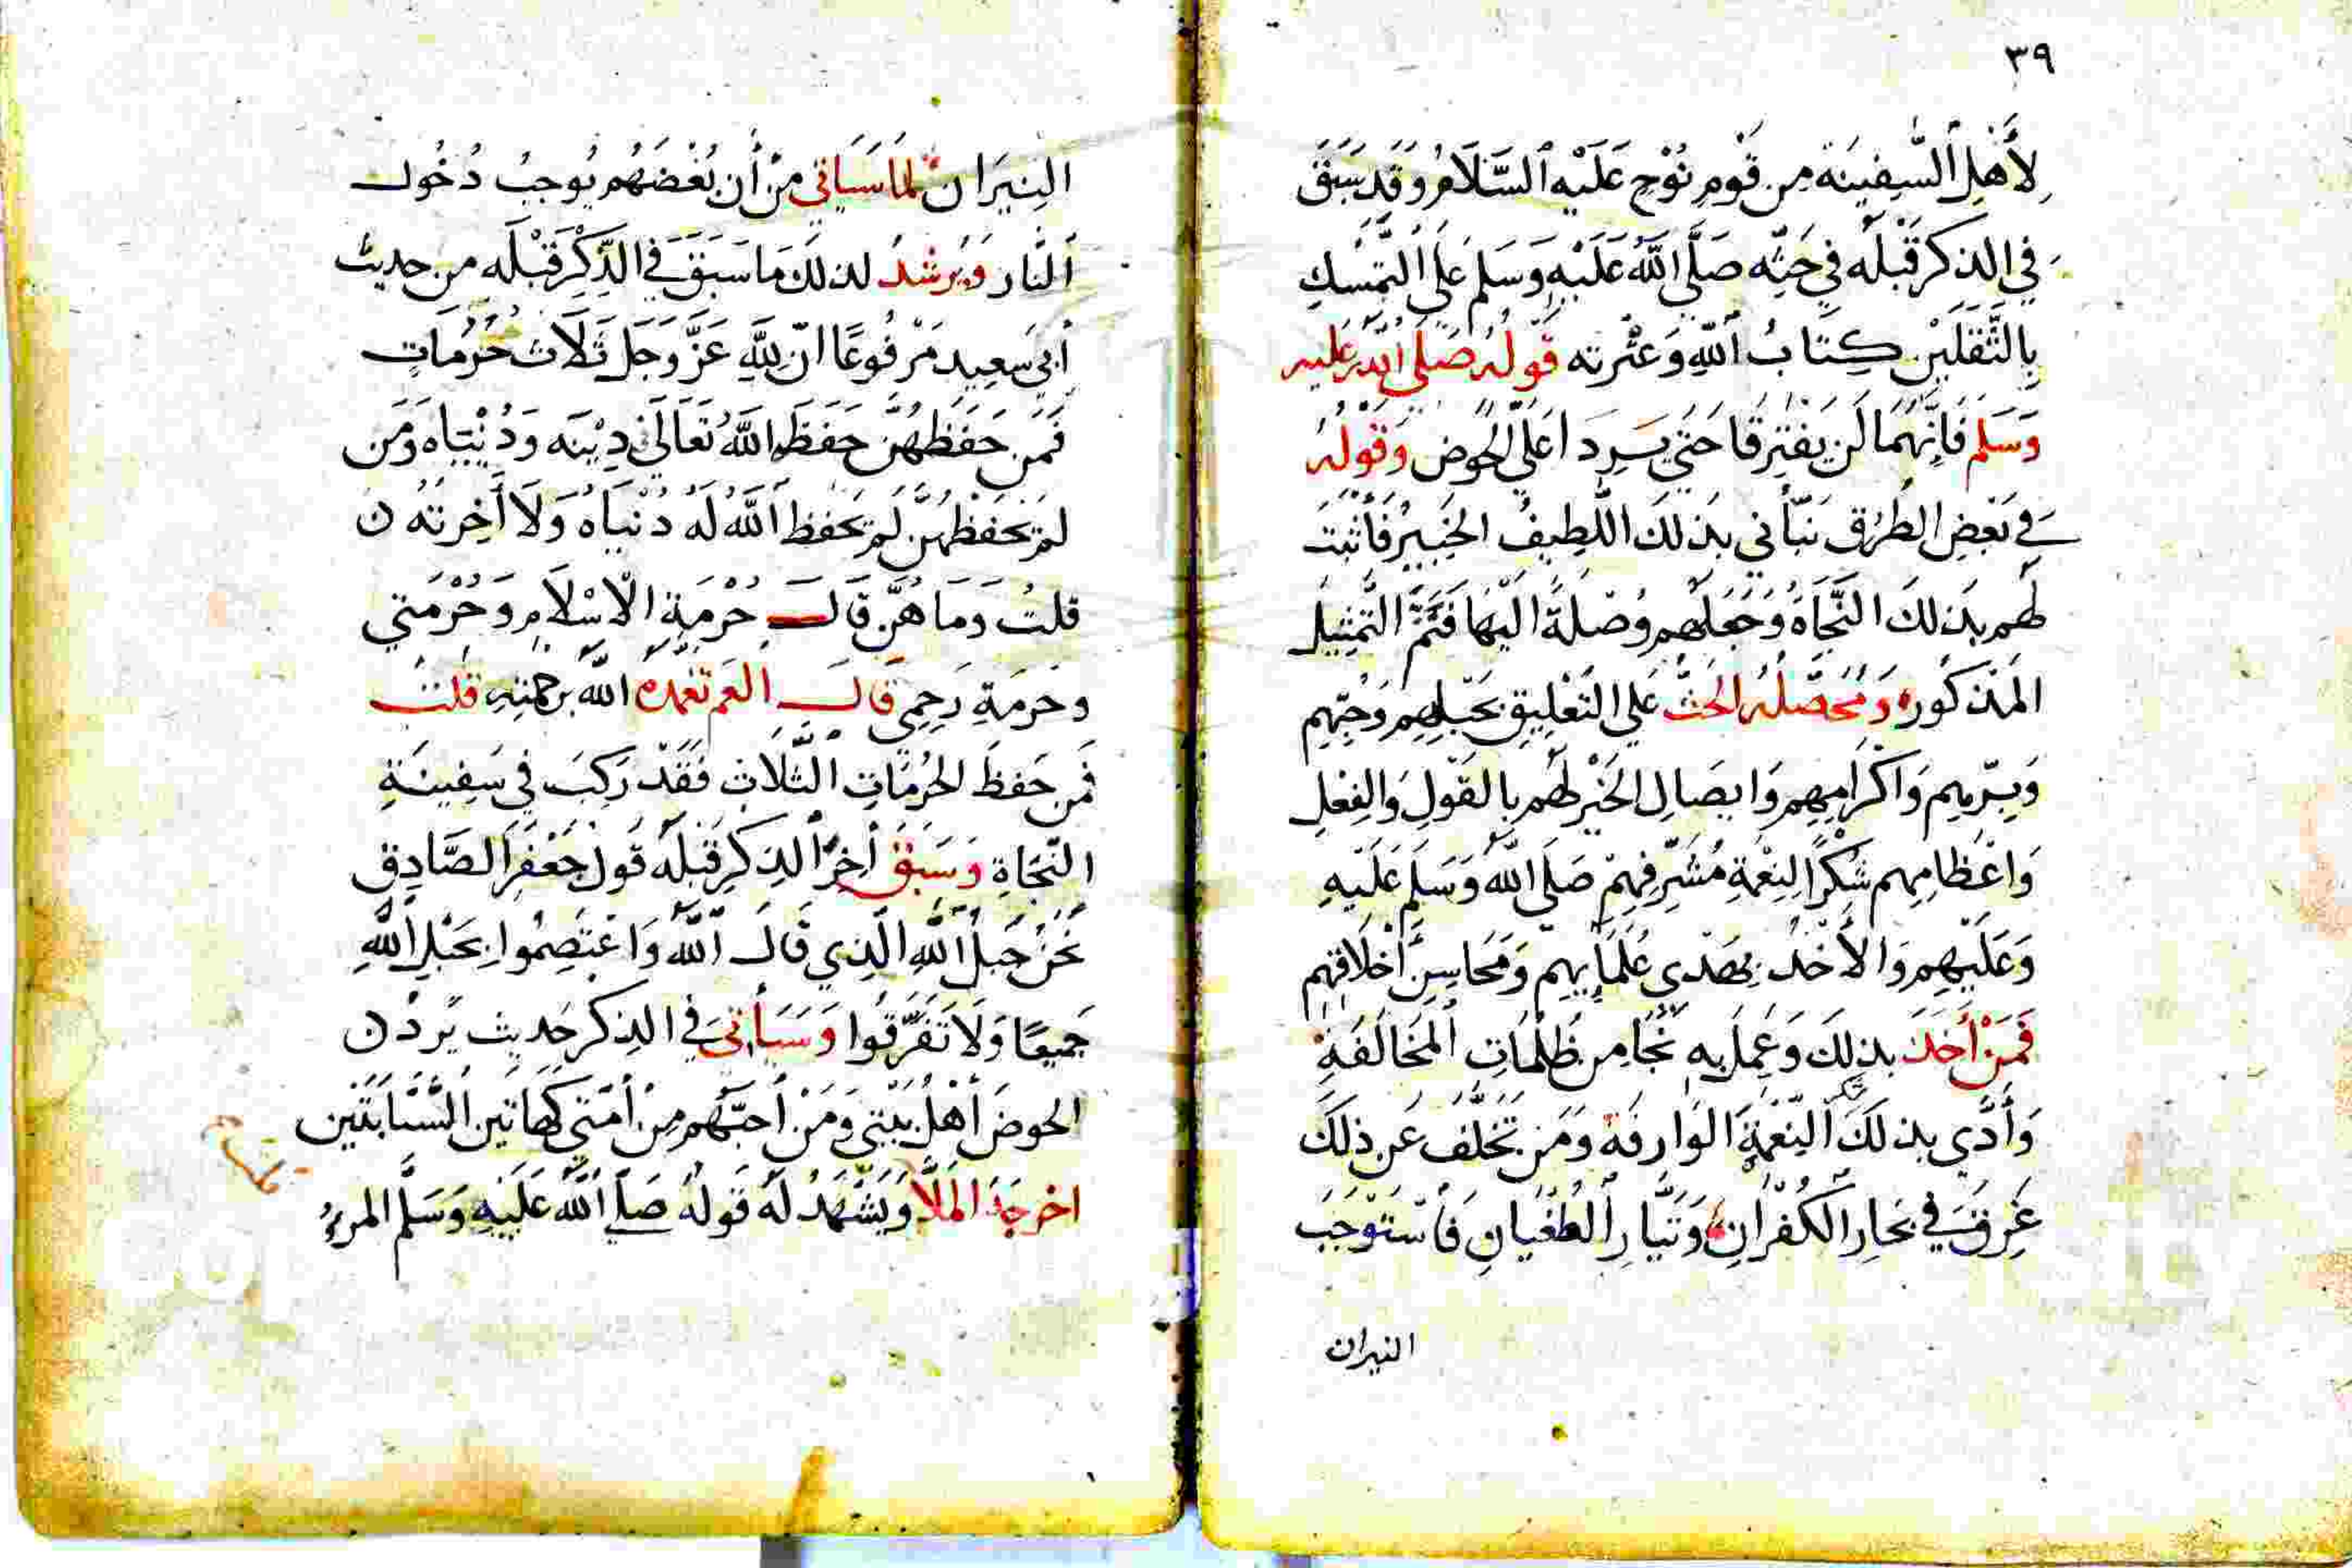 ٣٩
لِأَهْلِ السَّفِينَةِ مِن قَوْمِ نُوْحٍ عَلَيْهِ السَّلَامُ وَقَدْ سَبَقَ
فِي الذكرِ قَبْلَه فِي حَثِّه صَلَّى اللَّهُ عَلَيْهِ وَسَلم عَلَى التَّمَسُّكِ
بِالثَّقَلَيْنِ كِتَابُ اللَّهِ وَعِتْرته قَولهُ صَلَى الله عَليه
وَسَلم فَإِنَّهُمَا لَن يَفْتَرِقَا حَتى يَرِدَا عَلَى الحَوض وَقَولهُ
في بَعْضِ الطُرُق نَبّأَني بذلكَ اللَّطِيفُ الخَبِيرُ فَأَثْبَتَ
لَهُم بذلكَ النَّجَاةُ وَجَعَلَهُم وُصْلَةً الَيْهَا فَتَمَّ التَّمْثِيلُ
المَذكُوره وَمُحَصّلهُ الحَثُّ عَلى التَعْلِيقِ بحَبْلِهِم وَحُبِّهِم
وَبِرّهِم وَاكْرَامِهِم وَايصَالِ الخَيْرِ لَهُم بالقَوْلِ وَالفِعْلِ
وَاعْظَامِهِم شُكْرًا لِنِعْمَةِ مُشَرِّفِهِمْ صَلَى اللَّهُ وَسَلَم عَلَيْهِ
وَعَلَيْهِم وَالأَخْذ بهَدْي عُلَمَايِهِم وَمَحَاسِنِ أَخْلَاقِهِم
فَمَنْ أَخَذَ بذلِكَ وَعَمِلَ بِهِ نَجَا مِن ظُلُمَاتِ المَخَالَفَةِ
وَأَدَّى بذلكَ النِّعْمَةِ الوَارِفَة وَمَن تَخَلَّفَ عَن ذلكَ
غَرِقَ في بحَارِ الكُفْرَانِ وَتَيَّارِ الطُغْيَانِ فَاسْتَوْجَبَ
النيران
النِيرَان لمَا سَيَاتي مِنْ أَن بُغْضَهُم يُوجِبُ دُخُول
النَّار وَيُرشدُ لذلكَ مَا سَبَقَ في الذِّكْرِ قَبْلَه من حديث
أبي سَعِيد مَرْفُوعًا انّ لِلَّهِ عَزَّ وَجَل ثَلَاث حُرُمَاتٍ
فَمَن حَفَظَهُنَّ حَفَظَ اللَّهُ تَعَالَى دِيْنَه وَدُنْيَاه وَمَن
لمْ يَحْفَظْهُنّ لَمْ يَحْفَظ اللَّهُ لَهُ دُنْيَاهُ وَلَا أخِرَتُه ن
قلتُ وَمَا هُنَّ قَالَ حُرْمَةِ الْاسْلَامِ وَحُرْمَتي
وحُرمَةِ رَحِمِي قَالَ العَم تغمده اللَّهُ برحْمَتِهِ قلتُ
فَمن حَفظَ الحُرُمَاتِ الثَّلَاثِ فَقَدْ رَكِبَ فِي سَفِينَةِ
النّجَاةِ وَسَبَقَ أخِرَ الذِكرِ قَبْلَه قَول جَعْفَر الصَّادِق
نَحْنُ حَبْلُ اللَّهِ الَّذِي قَالَ اللَّهُ وَاعْتَصِمُوا بحَبْلِ اللَّهِ
جَمِيعًا وَلَا تَفَرَّقُوا وَسَيَأتي في الذكرِ حَديث يَردُن
الحوضَ أَهْلُ بَيْتي وَمَنْ أَحَبَّهُم مِنْ أُمَتي كَهَاتَين السَّبَّابَتَين
اخرجَهُ المَلَّا وَيَشْهَدُ لَهُ قَولهُ صَلى اللَّهُ عَلَيْهِ وَسَلَّم المرءُ